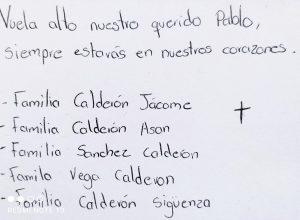 Vuela alto nuestro querido Pablo,
siempre estarás en nuestros corazones.
- Familia Calderón Jácome
- Familia Calderón Ason
- Familia Sanchez Calderón
- Familia Vega Calderon
- Familia Calderón Sigüenza
REDMI NOTE 10